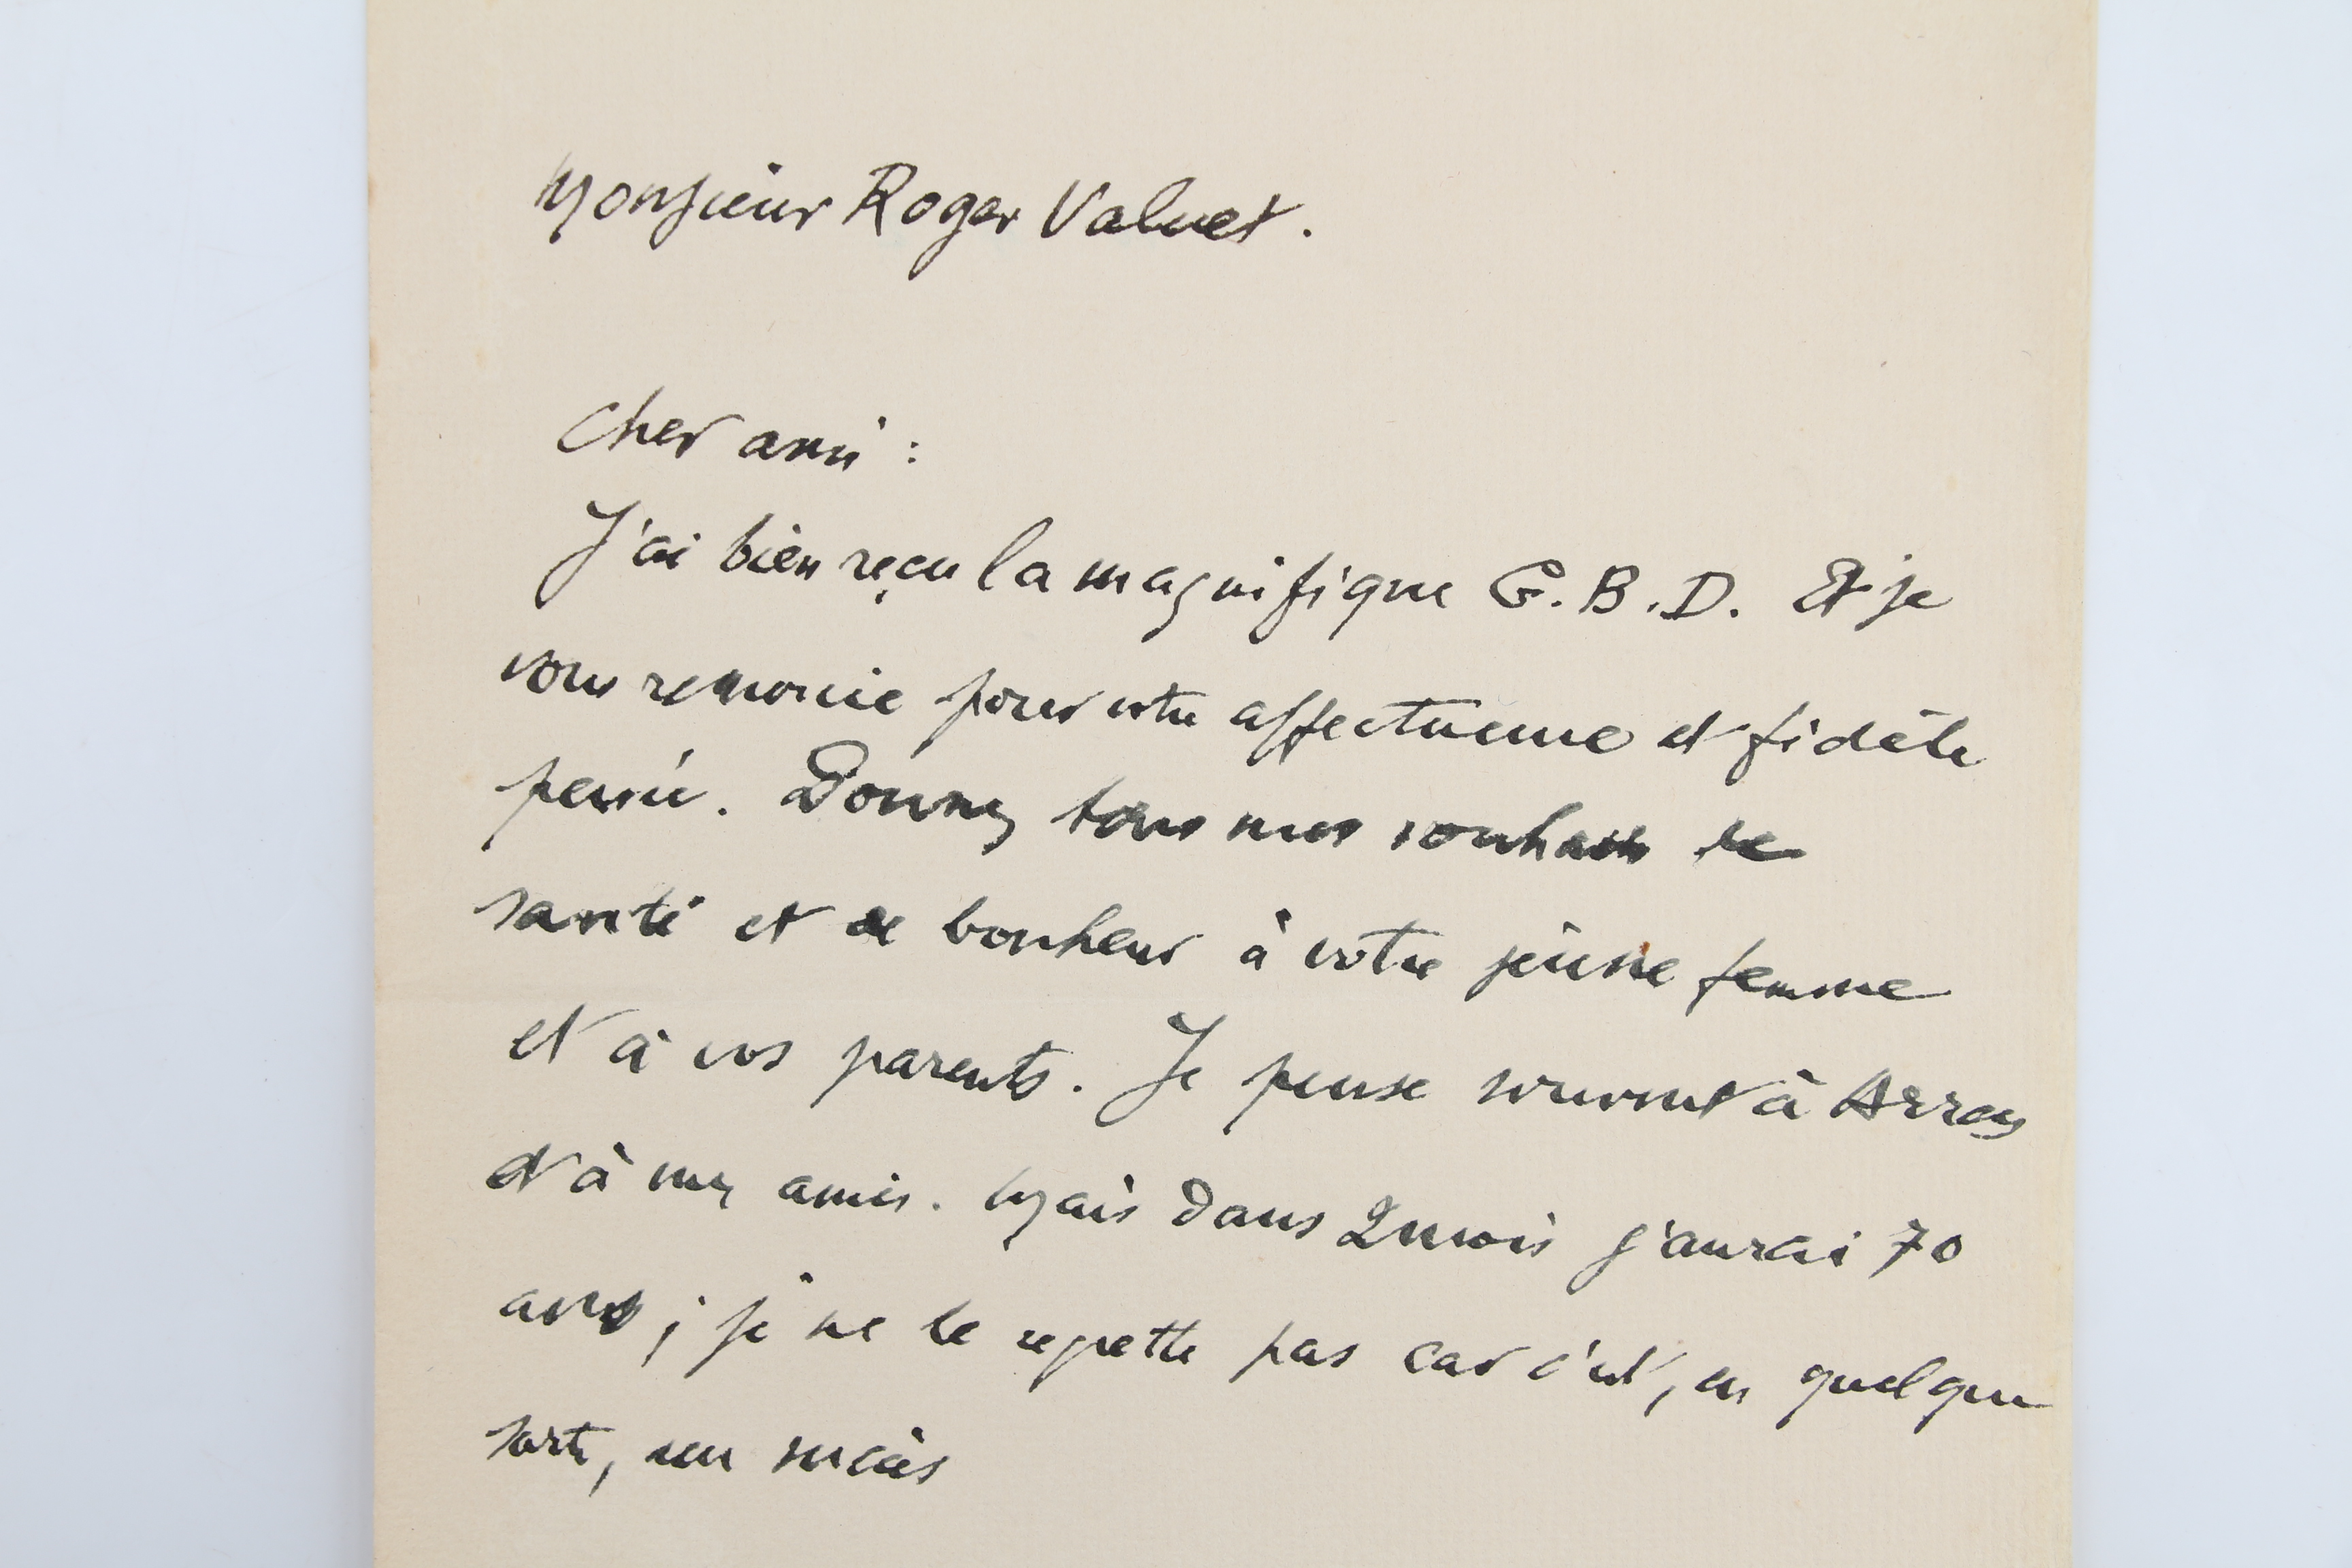 Monsieur Roger Valuet.
Cher ami :
J'ai bien reçu la magnifique G.B.D. Et je
vous remercie pour votre affectueuse et fidèle
pensée. Donnez tous mes souhaits de
santé et de bonheur à votre jeune femme
et à vos parents. Je pense souvent à Arras
et à mes amis. Mais dans 2 mois j'aurai 70
ans ; je ne le regrette pas car c'est, en quelque
sorte, un succès